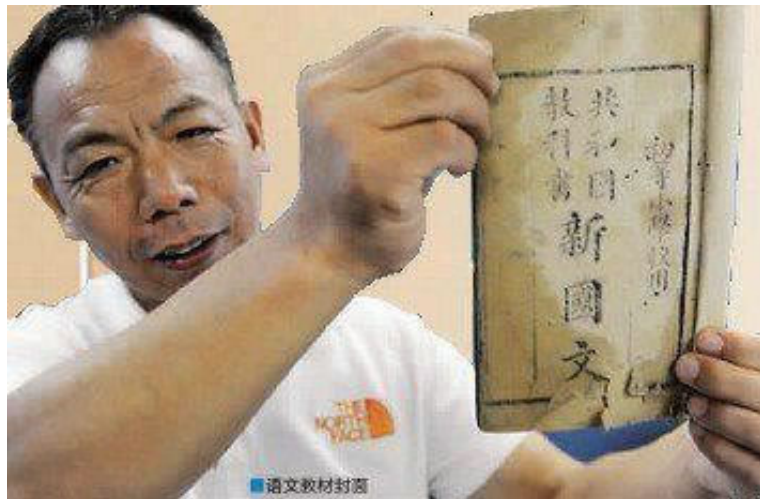 初等小學校用
共和国
教科書
新國文
THE
NORTH
FACE
语文教材封面